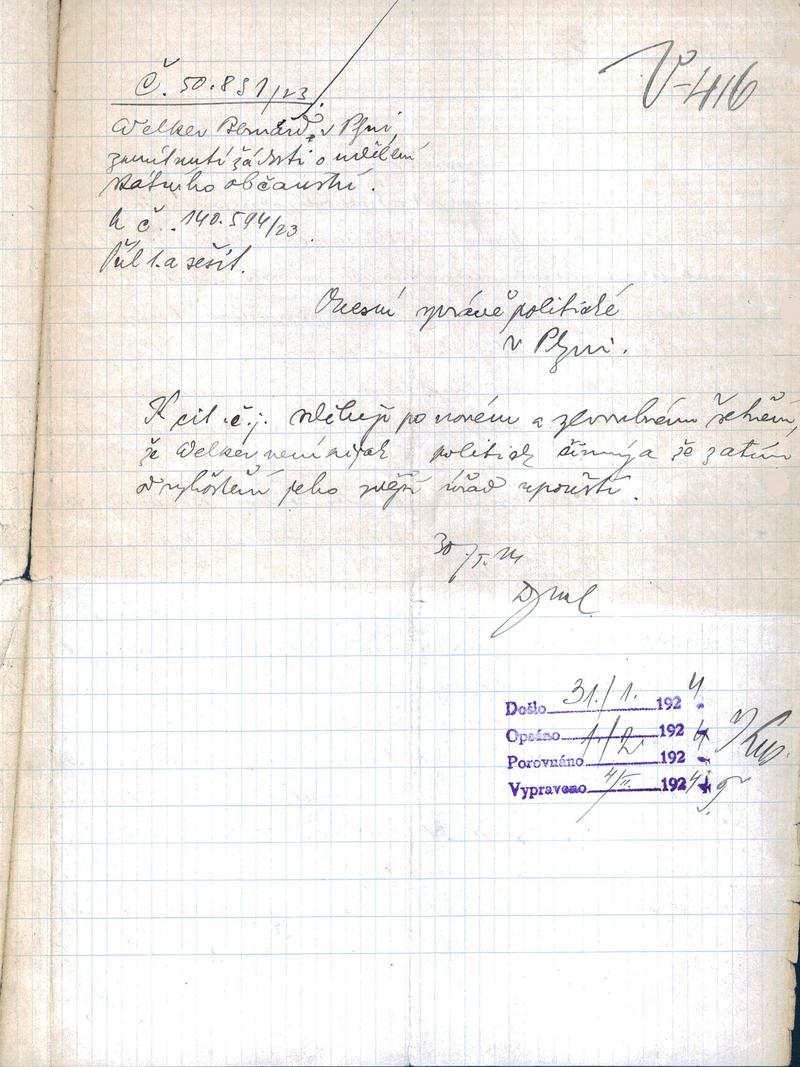 Č. 50.851/23.
V-416
Welker Bernard, v Plzni,
zamítnutí žádosti o udělení
státního občanství.
k č. 140.594/23.
Příl. 1. a sešit.
Okresní správě politické
v Plzni.
K cit. č. j. sděluji po novém a zevrubném šetření,
že Welker není nijak politicky činný a že zatím
od vyhoštění jeho zdejší úřad upouští.
30/I. 24
Došlo 31./1. 1924
Opsáno 1./2. 1924
Porovnáno 192
Vypraveno 4/II. 1924